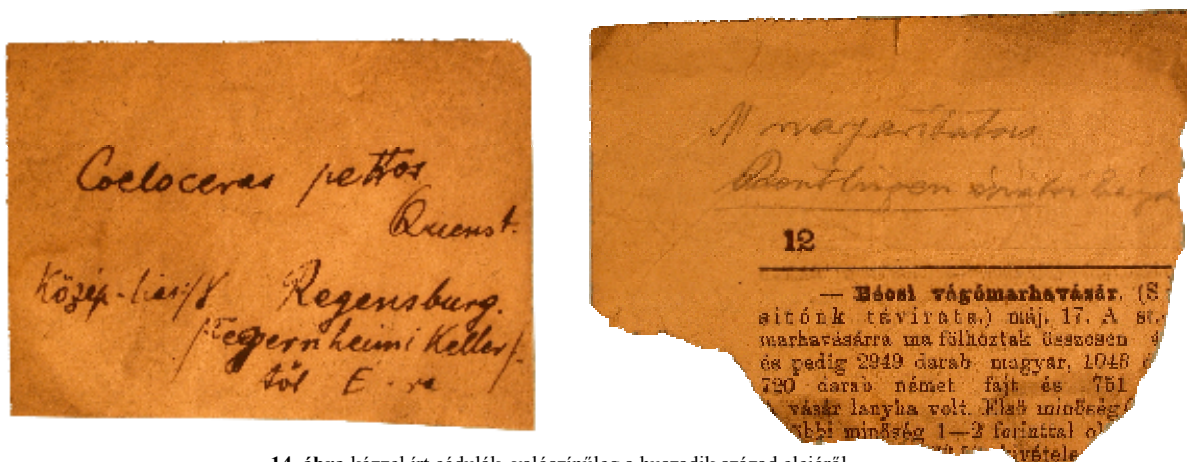 Coeloceras pettos
Quenst.
Közép-lias/γ Regensburg.
/Tegernheimi Keller/-
től E-ra
M margaritatus
12
— Bécsi vágómarhavásár. (S
sitónk távirata.) máj. 17. A
marhavásárra ma fölhoztak összesen
és pedig 2949 darab magyar, 1046
720 darab német fajt és 751
vásár lanyha volt. Első minőség
minőség 1—2 forinttal
14. ábra kézzel írt cédulák, valószínűleg a huszadik század elejéről